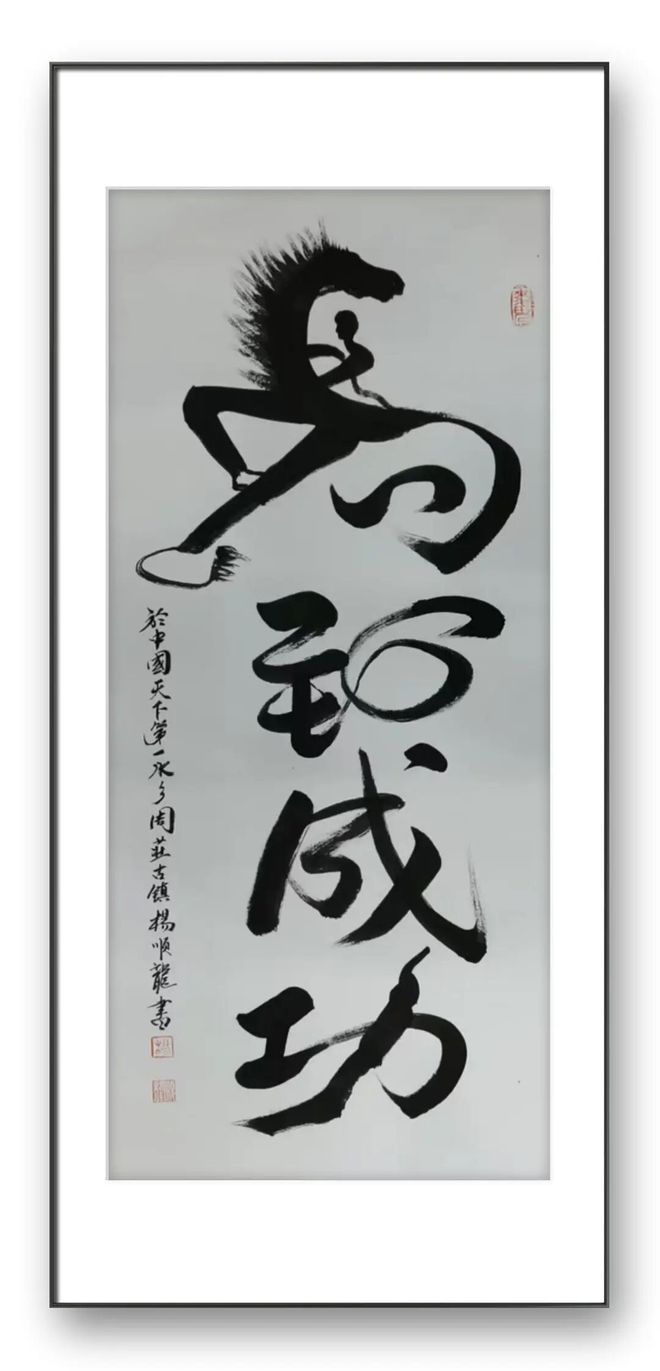 馬到成功
於中國天下第一水乡周莊古鎮楊順龍書